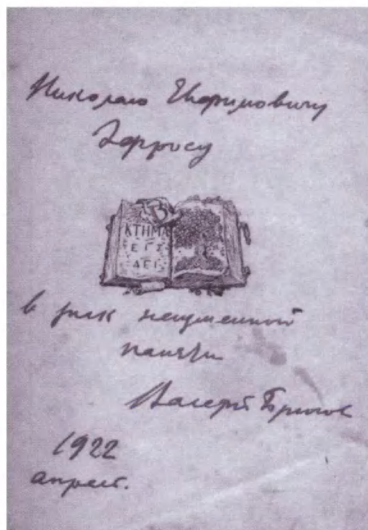 Николаю Ефимовичу
Эфросу
ΚΤΗΜΑ
ΕΙΣ
ΑΕΙ
в знак неизменной
памяти
Валерий Брюсов
1922
апрель.